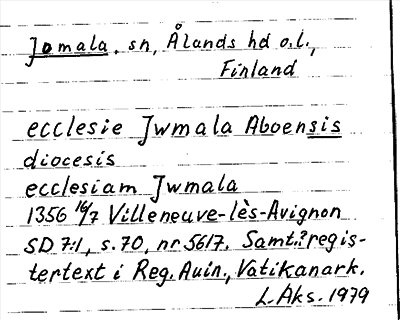 Jomala, sn, Ålands hd o.l.,
Finland
ecclesie Jwmala Aboensis
diocesis
ecclesiam Jwmala
1356 16/7 Villeneuve-lès-Avignon
SD 7:1, s. 70, nr 5617. Samt.? regis-
tertext i Reg. Avin., Vatikanark.
L Aks. 1979